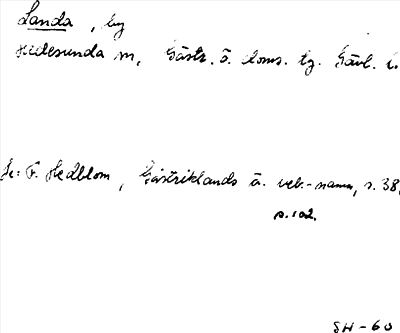 Landa, by
Hedesunda sn, Gästr. ö. doms. tg. Gävl. l.
Se: F. Hedblom, Gästriklands ä. beb.-namn, s. 38,
s. 102.
SH-60